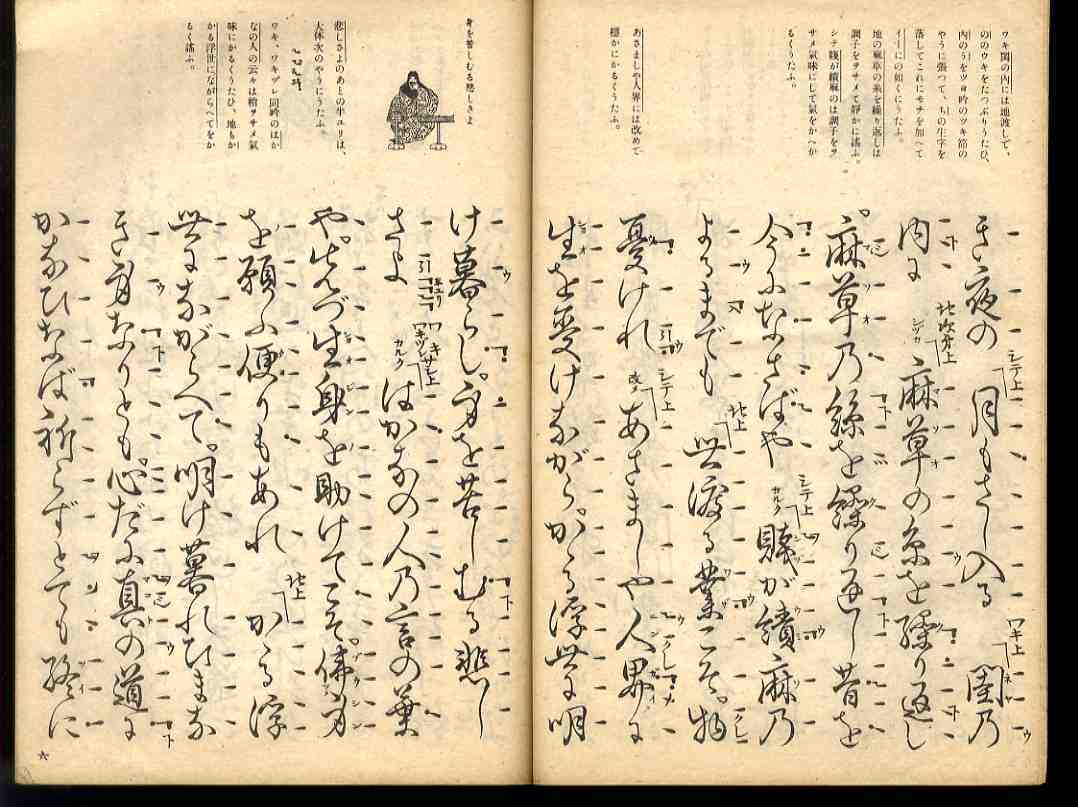 ワキ閨の内には地渡して、
ののウキをたつぷりうたひ、
内のうをツヨ吟のツキ節の
やうに張つて、ちの生字を
落してこれにモチを加へて
イーにの如くにうたふ。
地の麻草の糸を繰り返しは
調子をヲサメて靜かに謠ふ。
シテ賤が績麻のは調子をヲ
サメ氣味にして氣をかへか
るくうたふ。
あさましや人界には改めて
穩かにかるくうたふ。
き夜の シテ上 月もさし入る ワキ上 閨乃
内に 地次第上 シツカ 麻草の糸を繰り返し
麻草乃絲を繰り返し昔を
今になさばや シテ上 カルク 賤が績麻乃
よるまでも 地上 世渡る業こそ。物
憂けれ シテ上 改メ あさましや人界に
生を受けながら。かゝる浮世に明
身を苦しむる悲しさよ
悲しさよのあとの半ユリは、
大体次のやうにうたふ。
ワキ、ワキヅレ同吟のはか
なの人の云々は稍ヲサメ氣
味にかるくうたひ、地もか
かる浮世にながらへてをか
るく謠ふ。
け暮らし。身を苦しむる悲し
さよ ワキ ワキツレ サシ上 カルク はかなの人乃言の葉
や。先づ生身を助けてこそ。佛身
を願ふ便りもあれ 地上 かゝる浮
世にながらへて。明け暮れひまな
き身なりとも。心だに真の道に
かなひなば祈らずとても終に
六